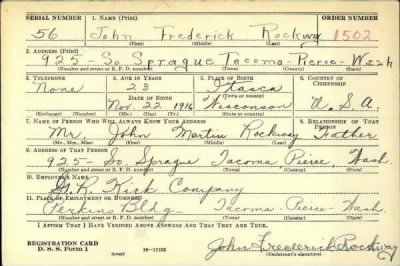 SERIAL NUMBER 1. NAME (Print) ORDER NUMBER
56 John Frederick Rockway 1502
(First) (Middle) (Last)
2. ADDRESS (Print)
925 - So. Sprague Tacoma - Pierce - Wash
(Number and street or R. F. D. number) (Town) (County) (State)
3. TELEPHONE 4. AGE IN YEARS 5. PLACE OF BIRTH 6. COUNTRY OF CITIZENSHIP
None 23 Itasca
DATE OF BIRTH (Town or county)
Nov. 22 1916 Wisconson U. S. A.
(Mo.) (Day) (Yr.) (State or country)
7. NAME OF PERSON WHO WILL ALWAYS KNOW YOUR ADDRESS 8. RELATIONSHIP OF THAT PERSON
Mr. John Martin Rockway Father
(Mr., Mrs., Miss) (First) (Middle) (Last)
9. ADDRESS OF THAT PERSON
925 - So. Sprague Tacoma Pierce, Wash.
(Number and street or R. F. D. number) (Town) (County) (State)
10. EMPLOYER'S NAME
Kirk Company
11. PLACE OF EMPLOYMENT OR BUSINESS
Perkins Bldg. Tacoma - Pierce - Wash.
(Number and street or R. F. D. number) (Town) (County) (State)
I AFFIRM THAT I HAVE VERIFIED ABOVE ANSWERS AND THAT THEY ARE TRUE.
REGISTRATION CARD
D. S. S. Form 1 (over) John Frederick Rockway
(Registrant's signature)